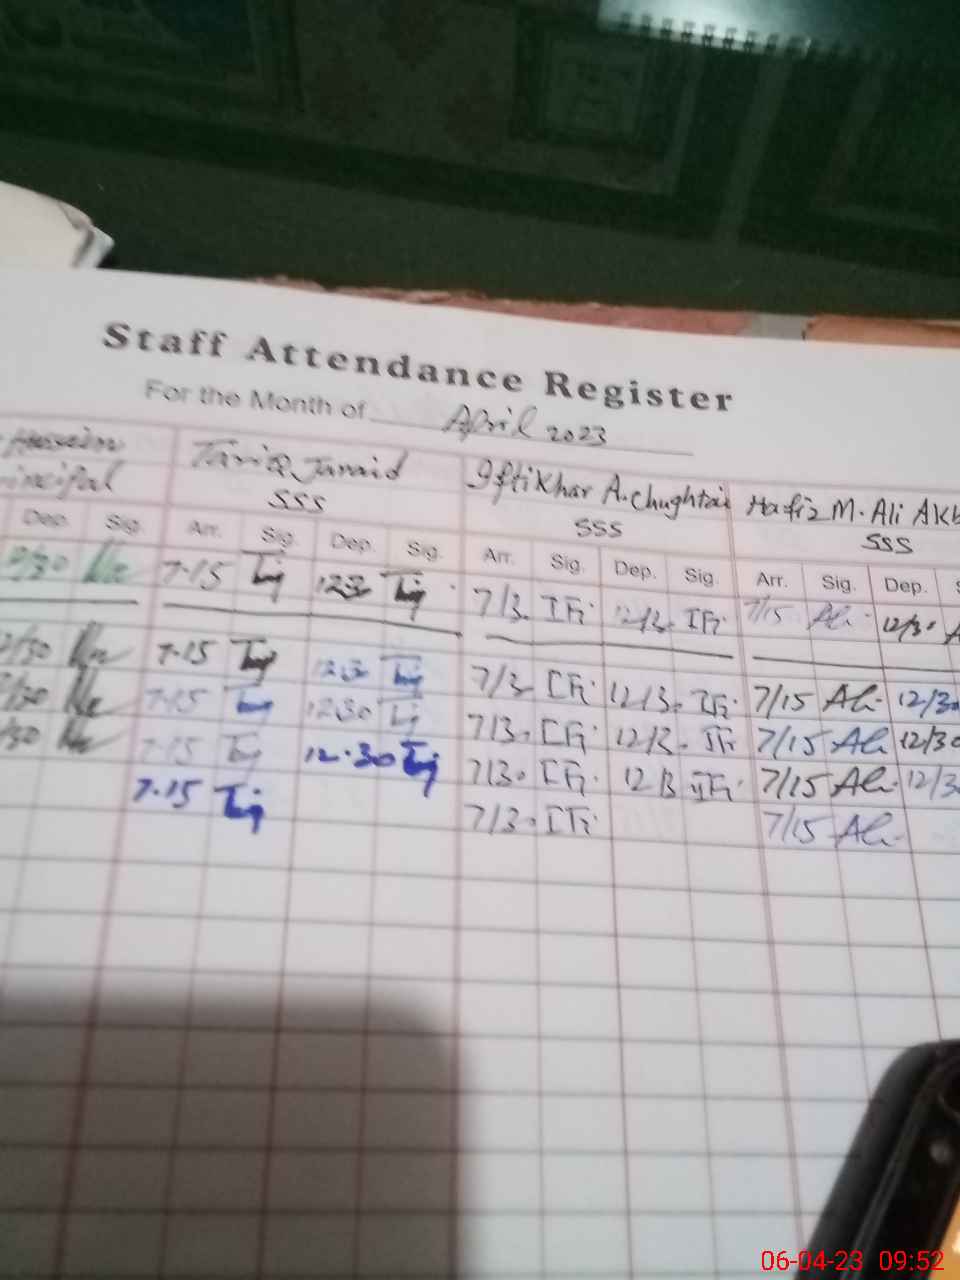 Staff Attendance Register
For the Month of April 2023
Hussain Tariq Junaid Iftikhar A. Chughtai Hafiz M. Ali Akb
incipal SSS SSS SSS
Dep. Sig. Arr. Sig. Dep. Sig. Arr. Sig. Dep. Sig. Arr. Sig. Dep. S
2/30 7-15 Tij 1230 Tij 7/30 IFi 12/30 IFi 7/15 Ali 12/30 A
2/30 7-15 Tij 1230 Tij 7/30 IFi 12/30 IFi 7/15 Ali 12/30
2/30 7-15 Tij 1230 Tij 7/30 IFi 12/30 IFi 7/15 Ali 12/30
/30 7-15 Tij 12.30 Tij 7/30 IFi 12/30 IFi 7/15 Ali 12/30
7-15 Tij 7/30 IFi 7/15 Ali
06-04-23 09:52